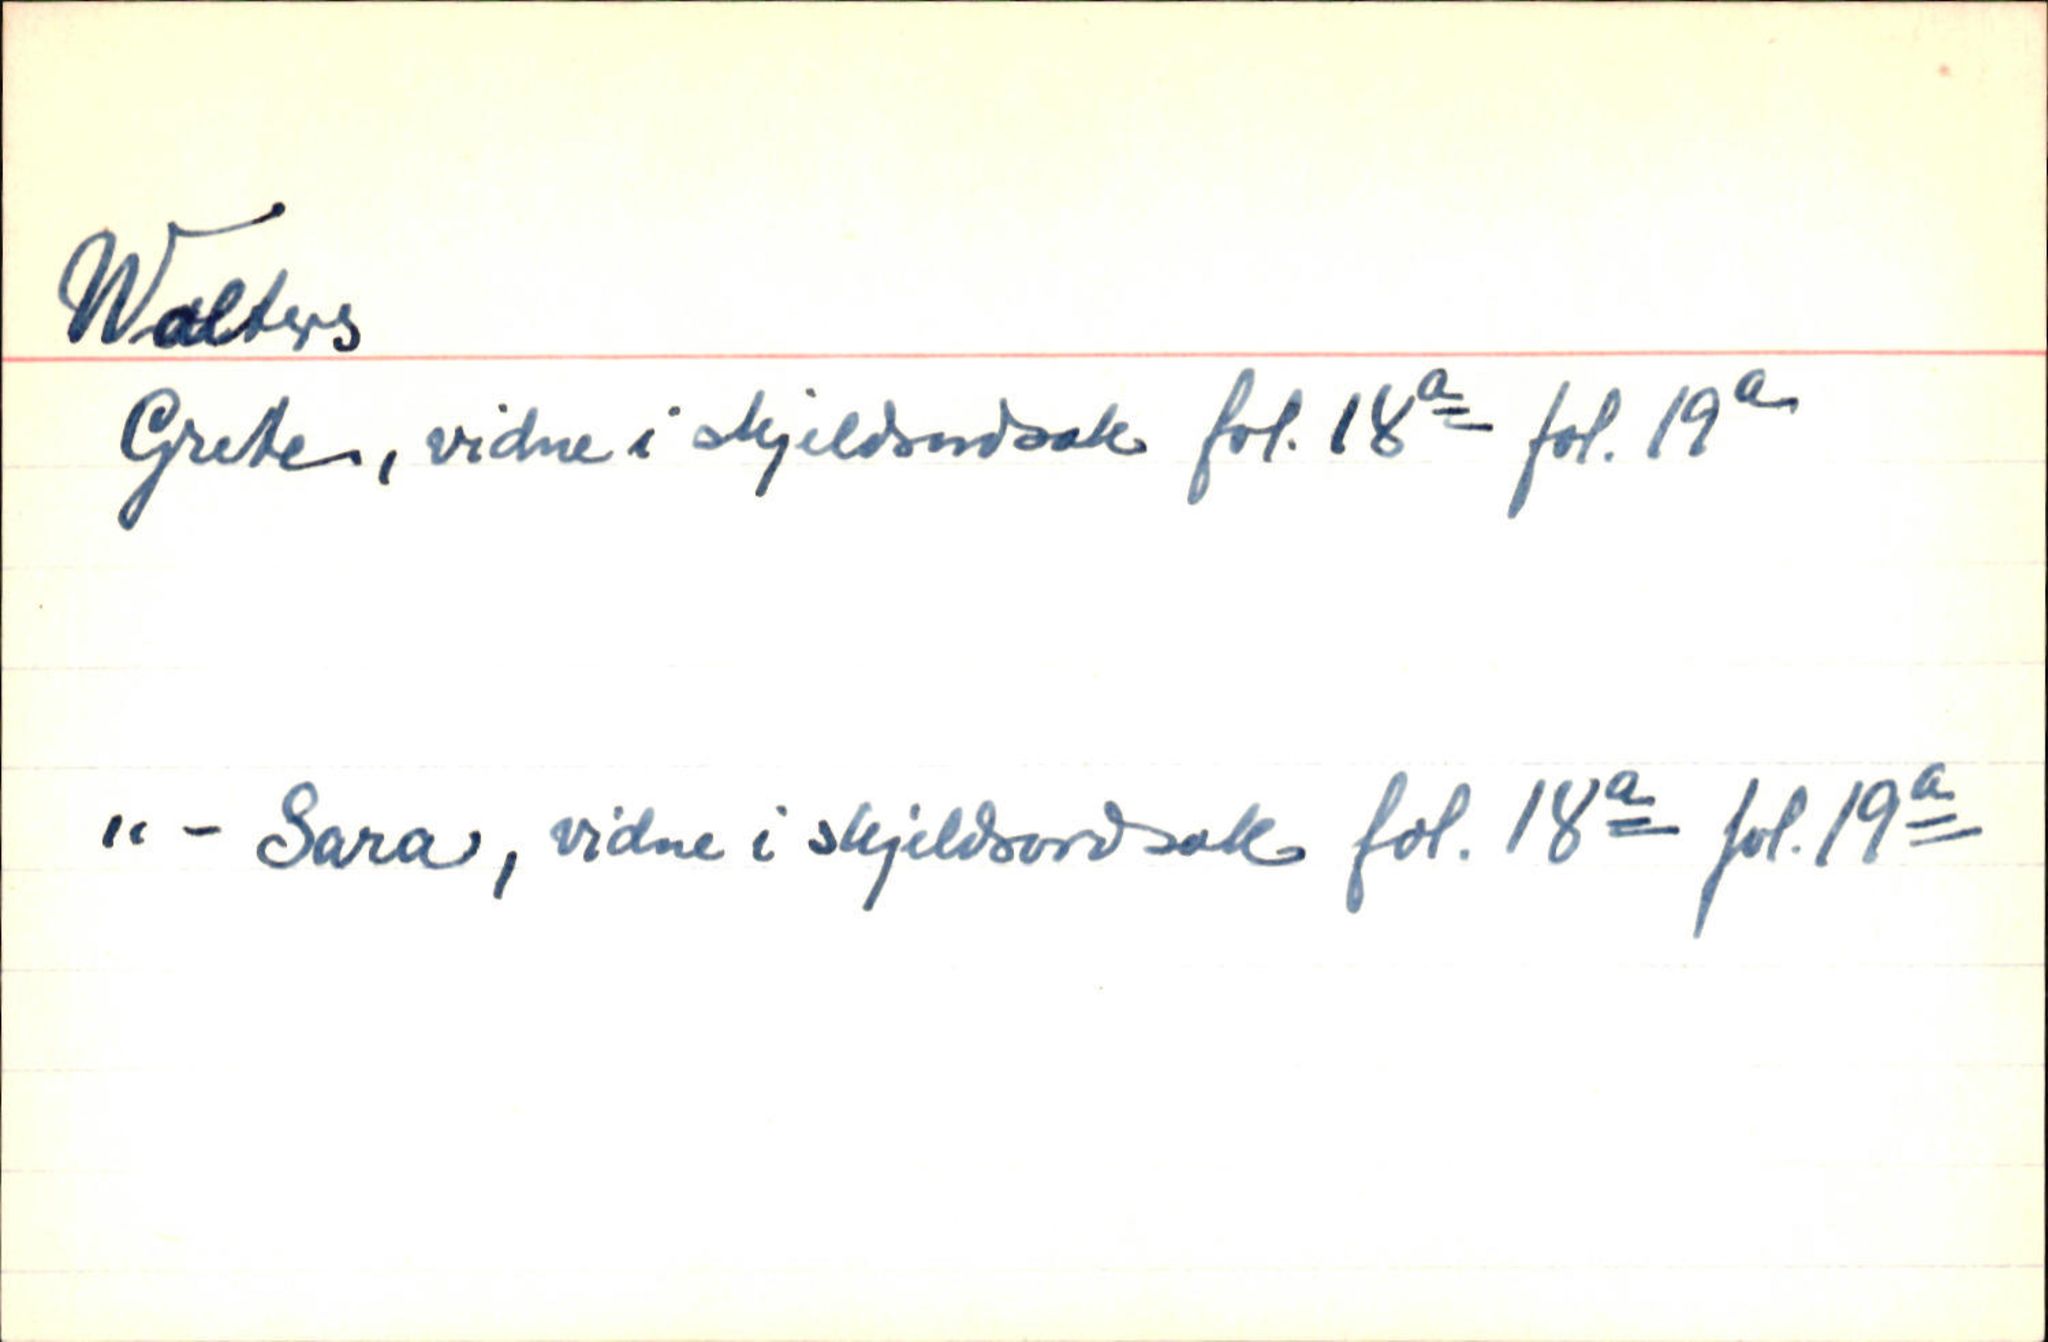 Walters
Grete, vidne i skjeldsordsak fol. 18a fol. 19a
"- Sara, vidne i skjeldsordsak fol. 18a fol. 19a